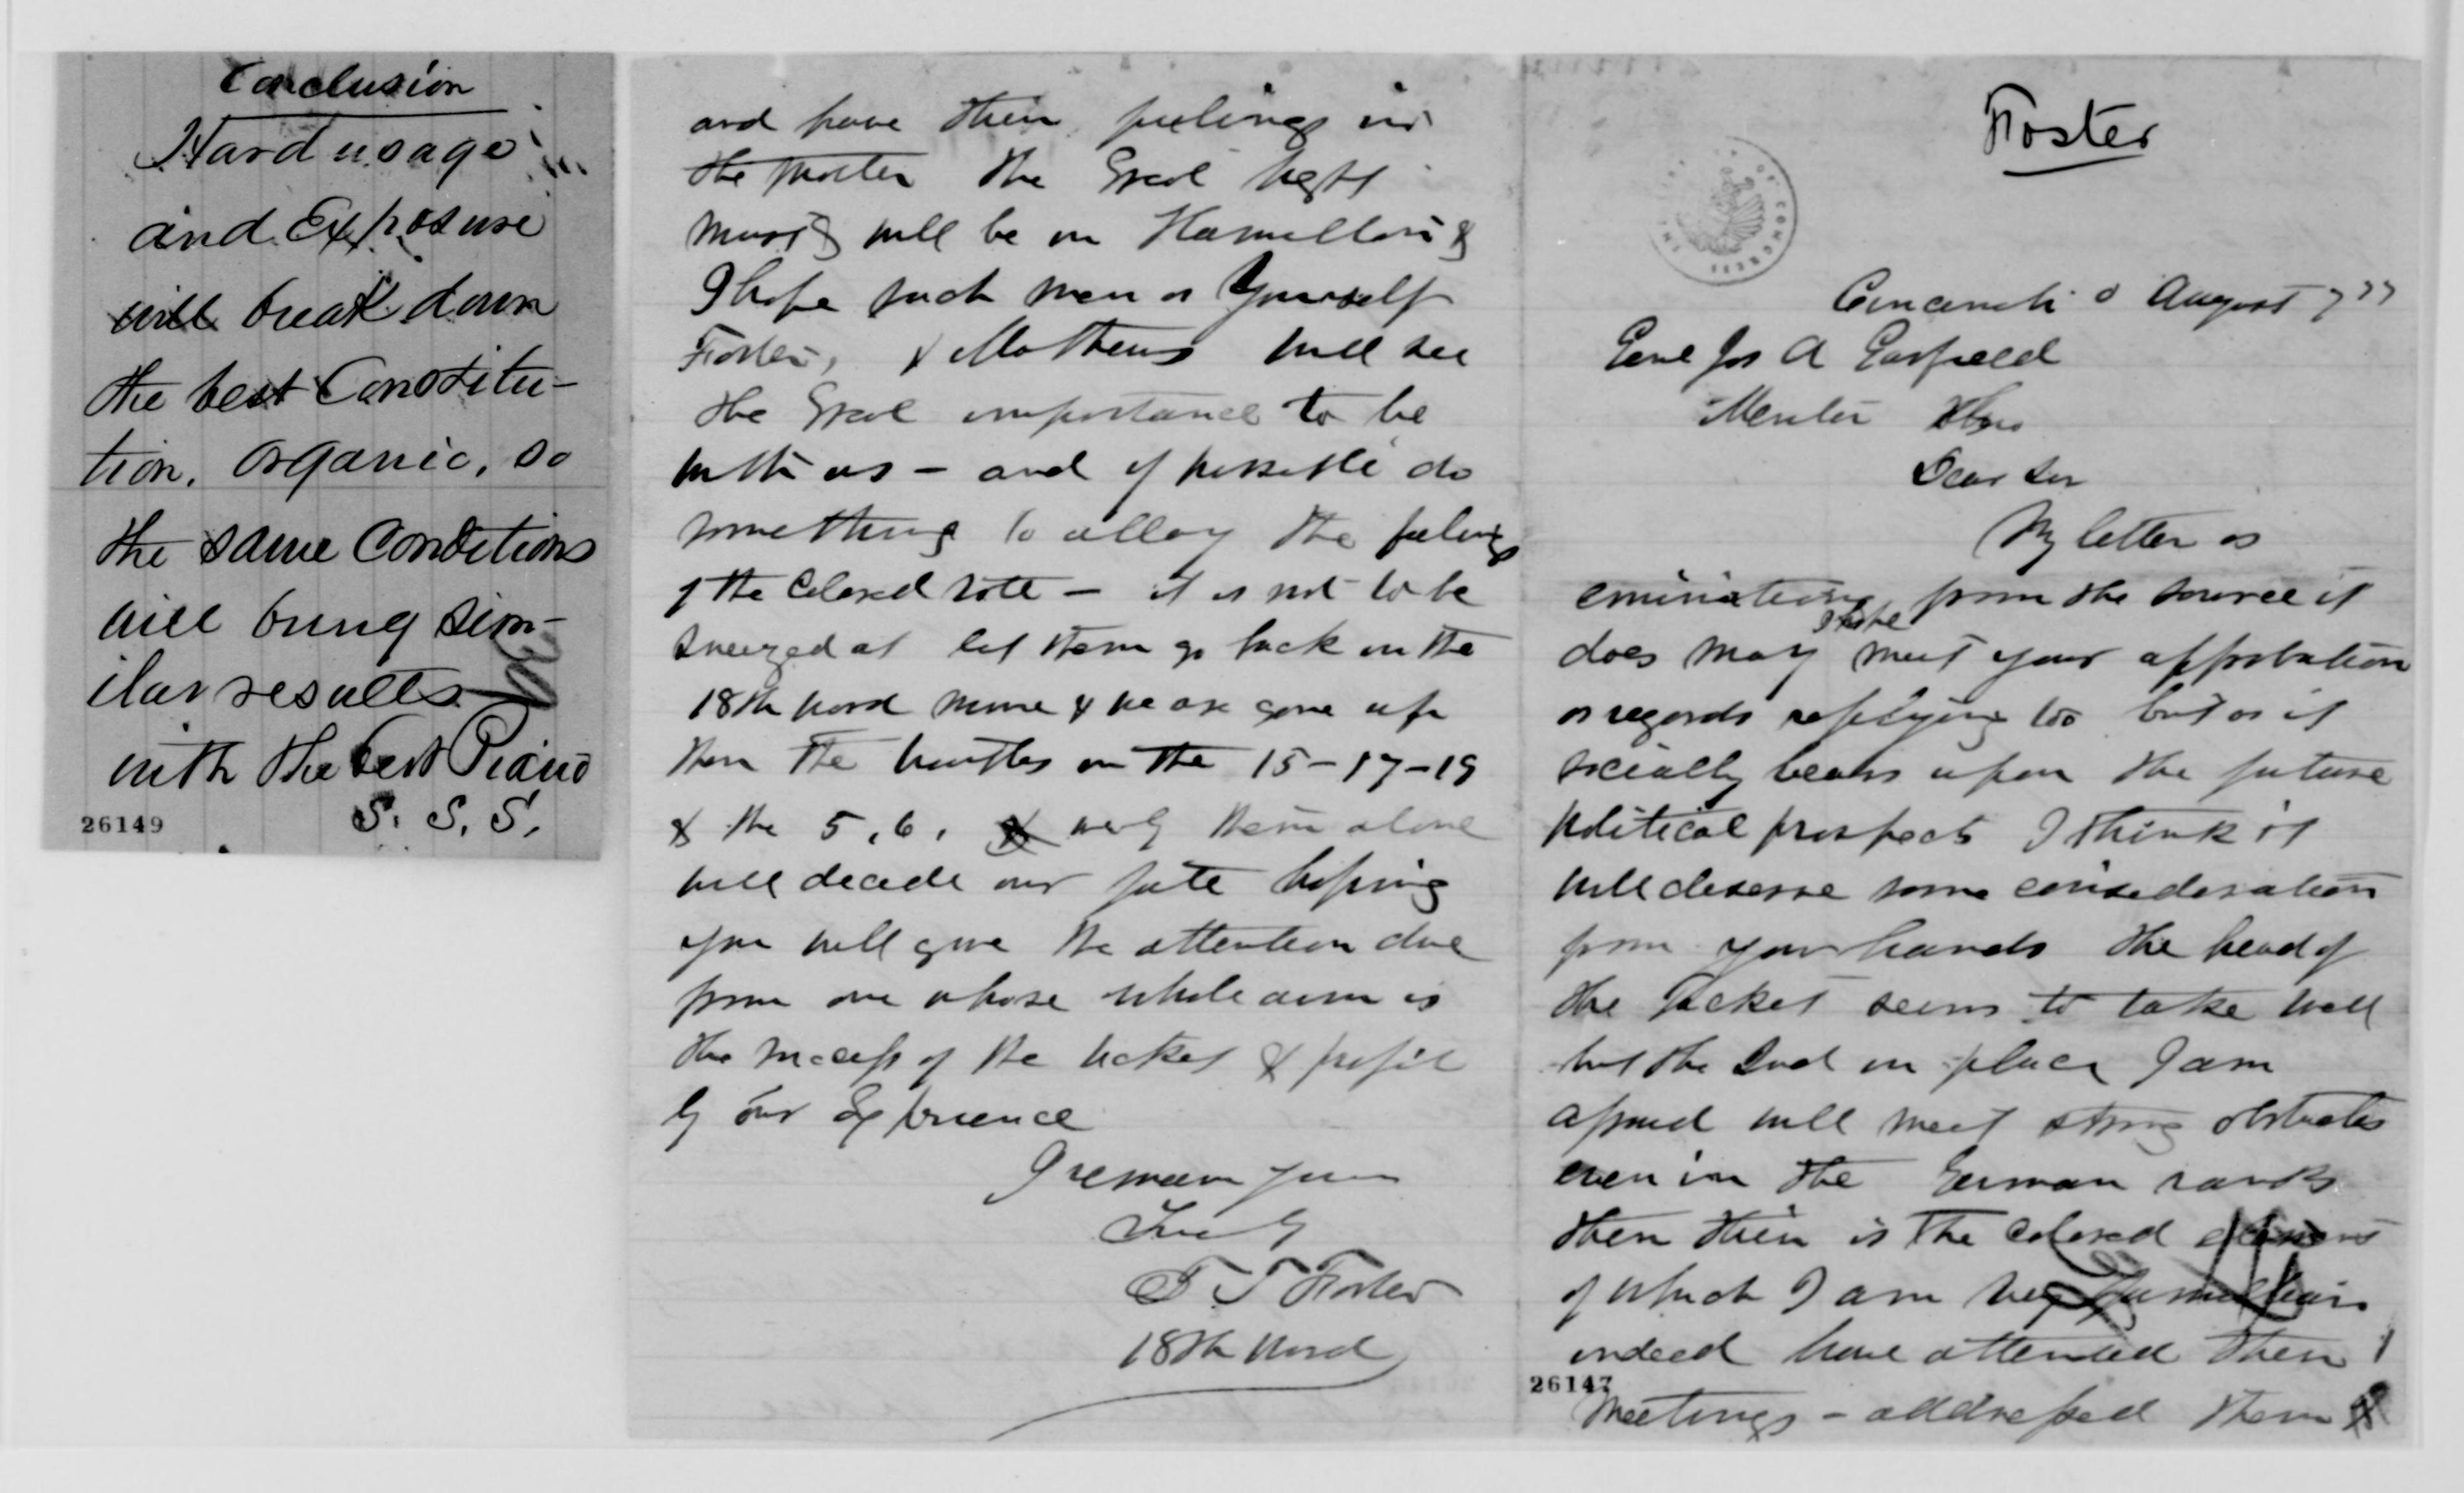 Conclusion
Hard usage
and Exposure
will break down
the best Constitu-
tion. organic, so
the same Conditions
will bring sim-
ilar results
with the best Piano
S. S. S.
26149
Foster
Cincinnati O August 7 77
Genl Jas A Garfield
Mentor Ohio
Dear Sir
My letter as
eminateing from the source it
does may I hope meet your approbation
as regards replying too but as it
socially bears upon the future
political prospects I think it
will deserve some consideration
from your hands the head of
the Ticket seems to take well
but the 2nd in place I am
afraid will meet strong obstacles
even in the German ranks
then their is the Colored element
of which I am very familiar
indeed have attended their
26147
Meetings – addressed them &
and have their feelings in
the matter the Great
will be in Hamilton &
I hope such men as Yourself
Foster, & Mathews will see
the Great importance to be
with us – and if possible do
something to allay the feelings
of the Colored vote – it is not to be
sneezed at let them go back on the
18th Ward mine & we are gone up
then the on the 15–17–19
& the 5, 6, them alone
will decide our fate hoping
you will give the attention due
from one whose whole aim is
the success of the ticket & profit
by our Experience
I remain yours
Truly
T Foster
18th Ward